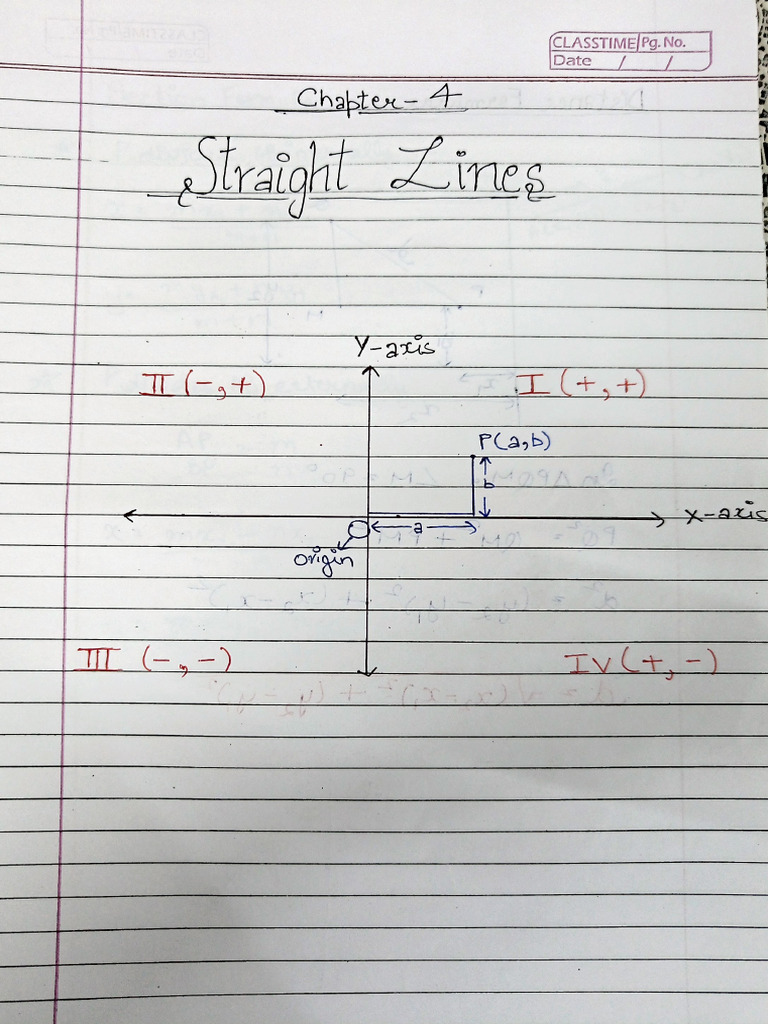 CLASSTIME Pg. No.
Date / /
Chapter - 4
Straight Lines
Y-axis
II (-,+) I (+,+)
P(a,b)
b
X-axis
a
Origin
III (-,-) IV (+,-)